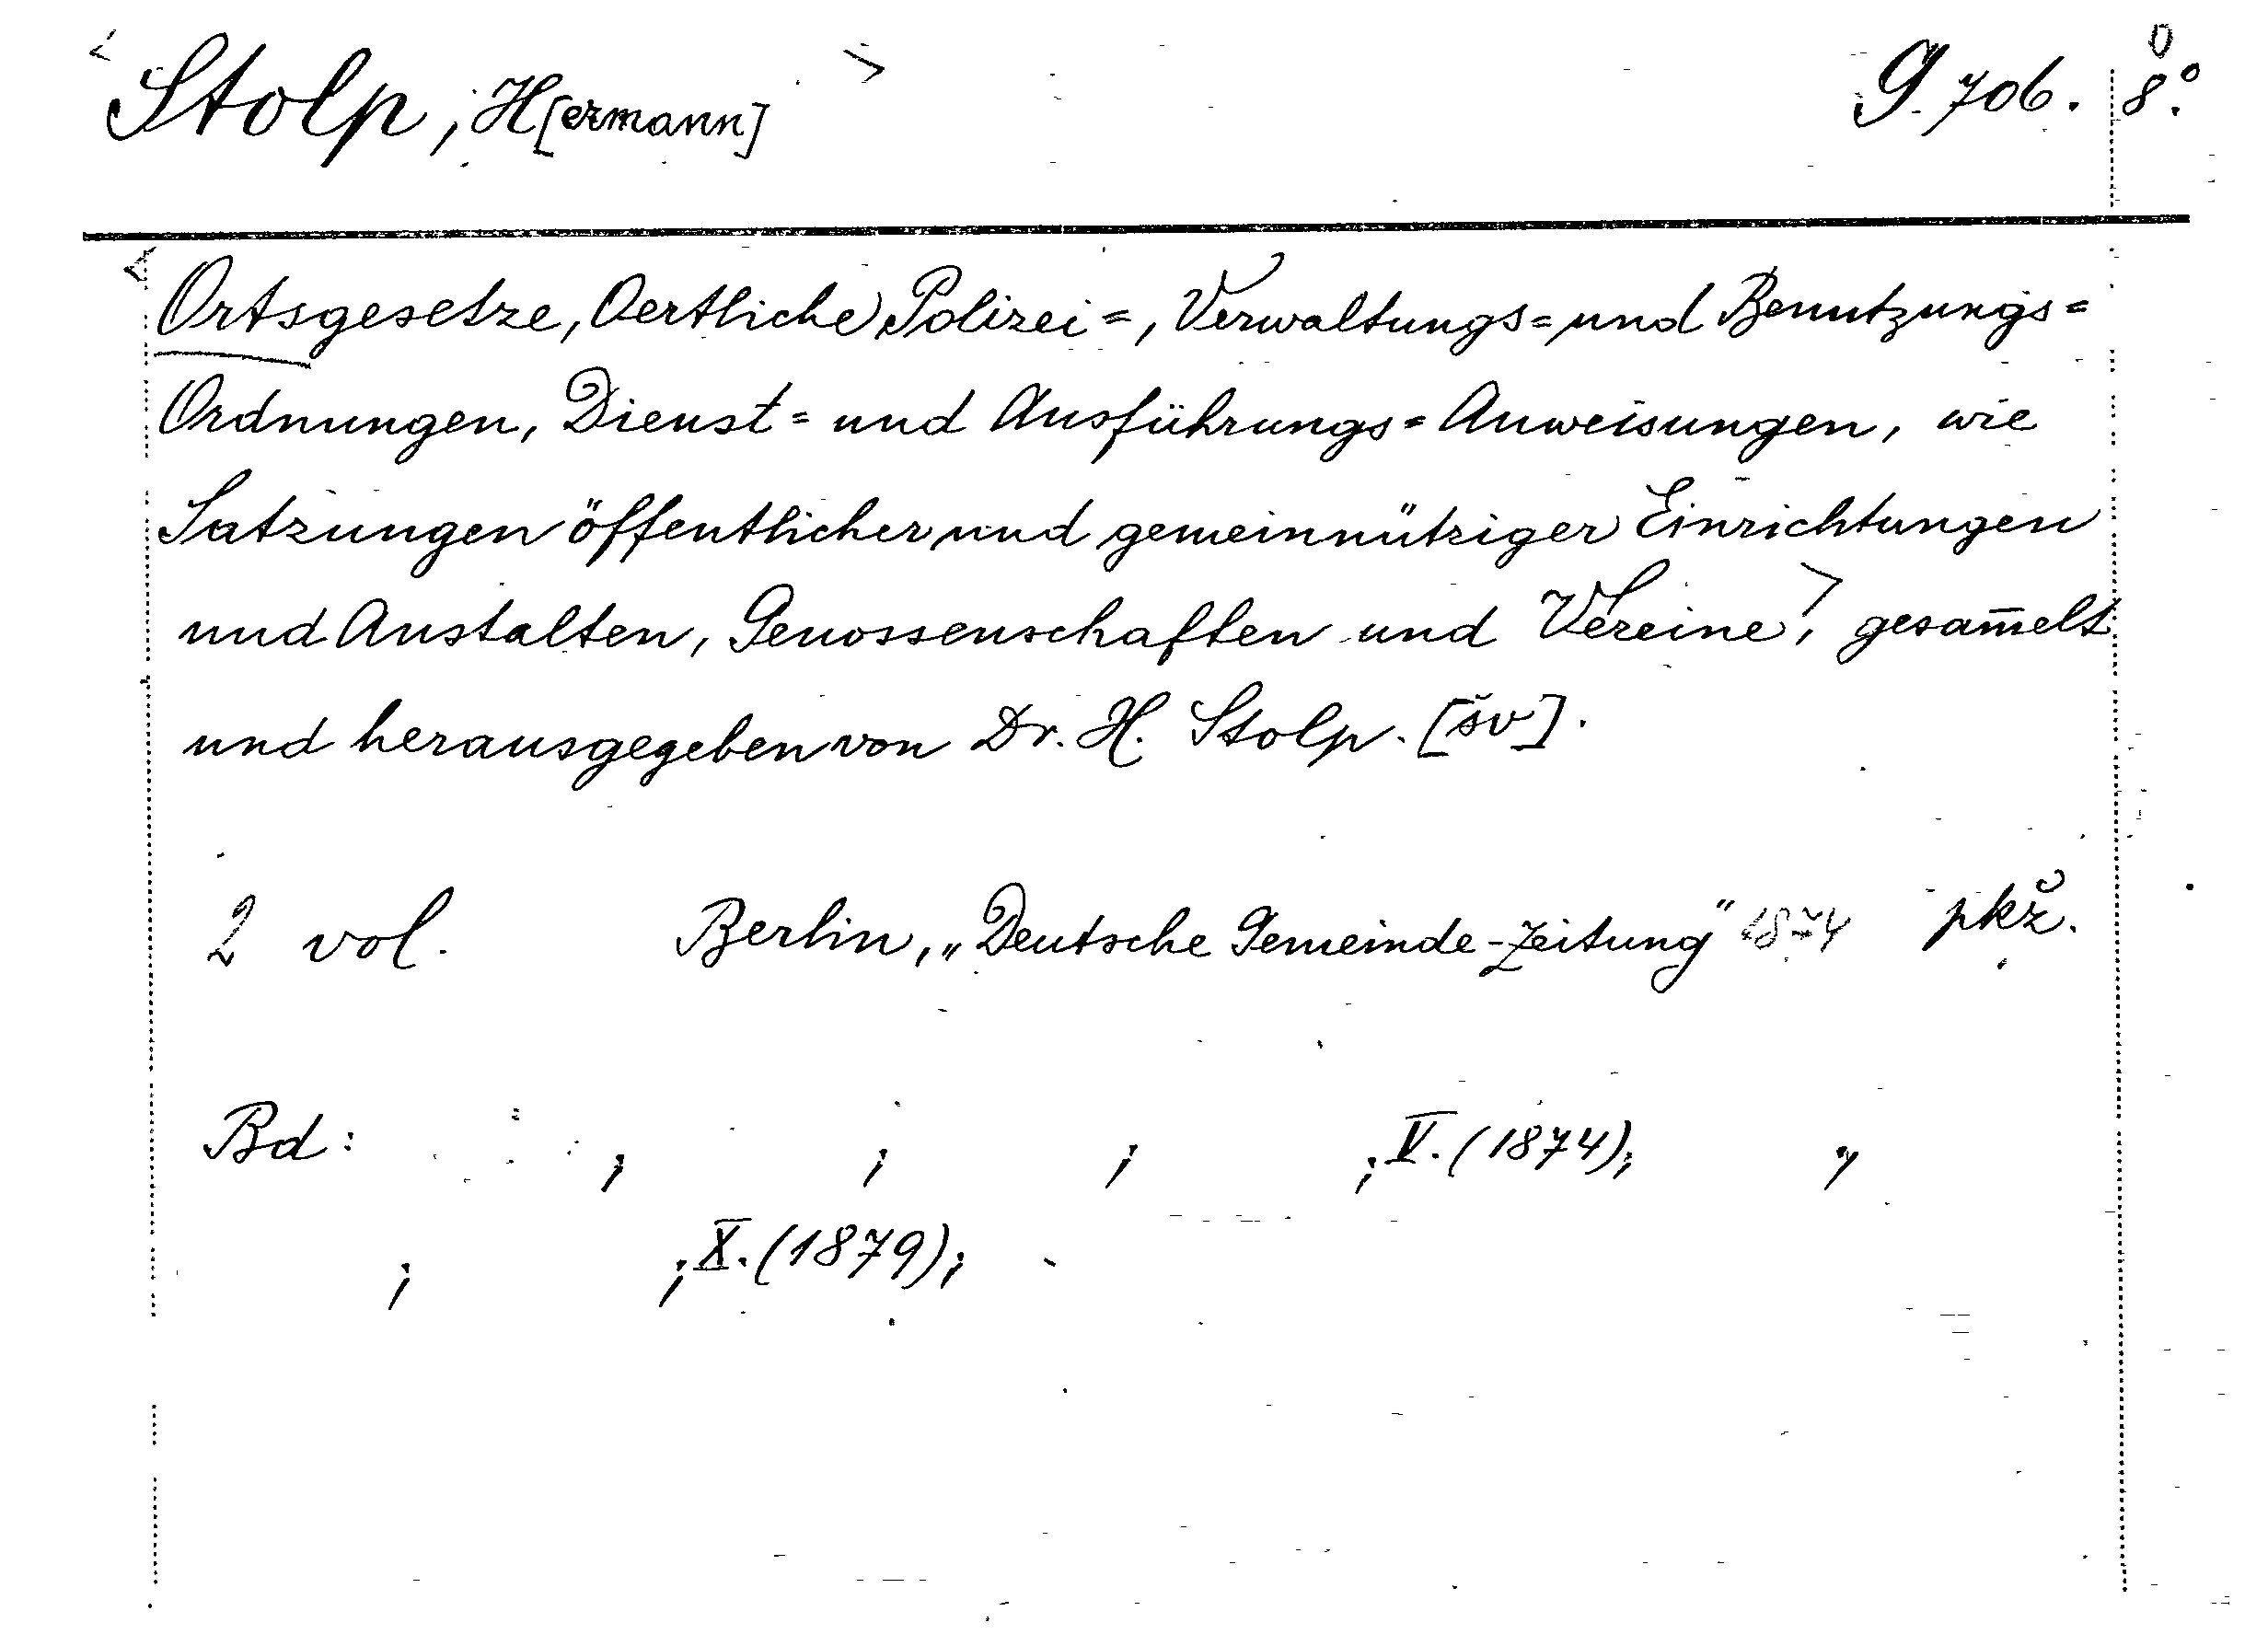 < Stolp, H[ermann] > G 706. 8°.
< Ortsgesetze, Oertliche Polizei=, Verwaltungs= und Benutzungs=
Ordnungen, Dienst= und Ausführungs=Anweisungen, wie
Satzungen öffentlicher und gemeinnütziger Einrichtungen
und Anstalten, Genossenschaften und Vereine >, gesam̅elt
und herausgegeben von Dr. H. Stolp. [šv].
2 vol. Berlin, „Deutsche Gemeinde-Zeitung" 1874 pkž.
Bd: ; ; ; ; V. (1874); ;
; ; X. (1879);